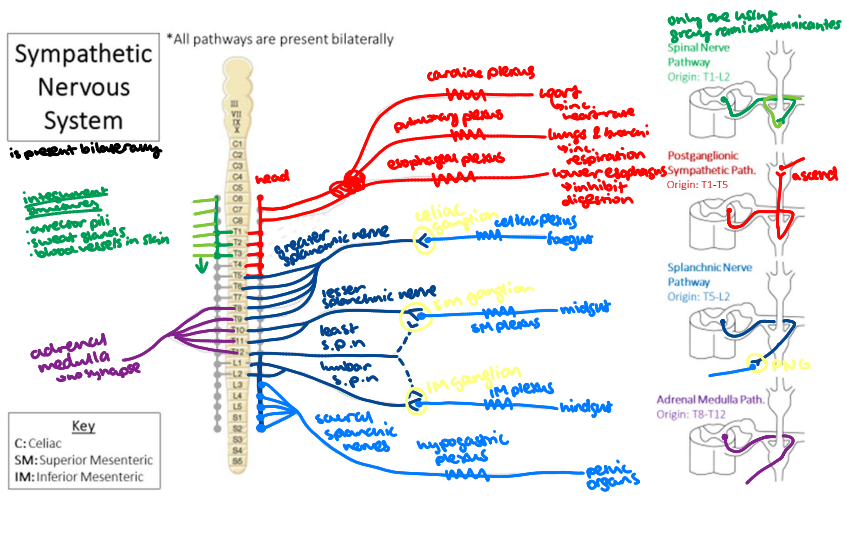 *All pathways are present bilaterally
Sympathetic
Nervous
System
is present bilaterally
integument
structures
·arrector pili
·sweat glands
·blood vessels in skin
adrenal
medulla
↳no synapse
III
VII
IX
X
C1
C2
C3
C4
C5
C6
C7
C8
T1
T2
T3
T4
T5
T6
T7
T8
T9
T10
T11
T12
L1
L2
L3
L4
L5
S1
S2
S3
S4
S5
head
cardiac plexus
heart
↳inc.
heart rate
pulmonary plexus
lungs & bronchi
↳inc.
respiration
esophageal plexus
lower esophagus
↳inhibit
digestion
greater
splanchnic nerve
celiac
ganglion
celiac plexus
foregut
lesser
splanchnic nerve
SM ganglion
SM plexus
midgut
least
s.p.n
lumbar
s.p.n
IM ganglion
IM plexus
hindgut
sacral
splanchnic
nerves
hypogastric
plexus
pelvic
organs
Key
C: Celiac
SM: Superior Mesenteric
IM: Inferior Mesenteric
only one using
gray rami communicantes
Spinal Nerve
Pathway
Origin: T1-L2
Postganglionic
Sympathetic Path.
Origin: T1-T5
ascend
Splanchnic Nerve
Pathway
Origin: T5-L2
PNG
Adrenal Medulla Path.
Origin: T8-T12